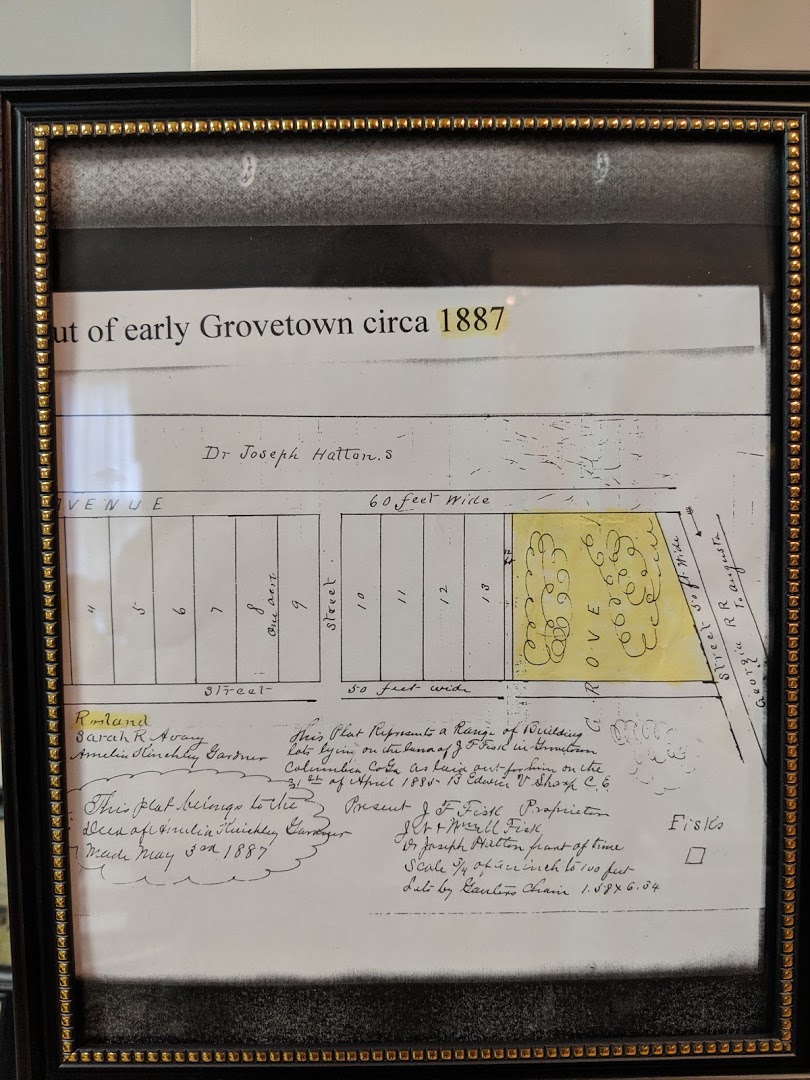 ut of early Grovetown circa 1887
Dr Joseph Hatton.s
VENUE
60 feet Wide
4
5
6
7
8
one acre
9
Street
10
11
12
13
GROVE
Street 50 ft Wide
Georgia RR To Augusta
Street
50 feet wide
Rosland
Sarah R Avary
Amelia Kinchley Gardner
This Plat Represents a Range of Building
lots lying on the land of J F Fisk in Grovetown
Columbia Co Ga as laid out for him on the
of April 1885 B Edwin V Sharp C.E.
This plat belongs to the
Deed of Amelia Kinchley Gardner
Made May 3rd 1887
Present J F Fisk Proprietor
Fisk
Dr Joseph Hatton part of time
Scale 3/4 of an inch to 100 feet
Lots by Chain 1.58 X 6.34
Fisks